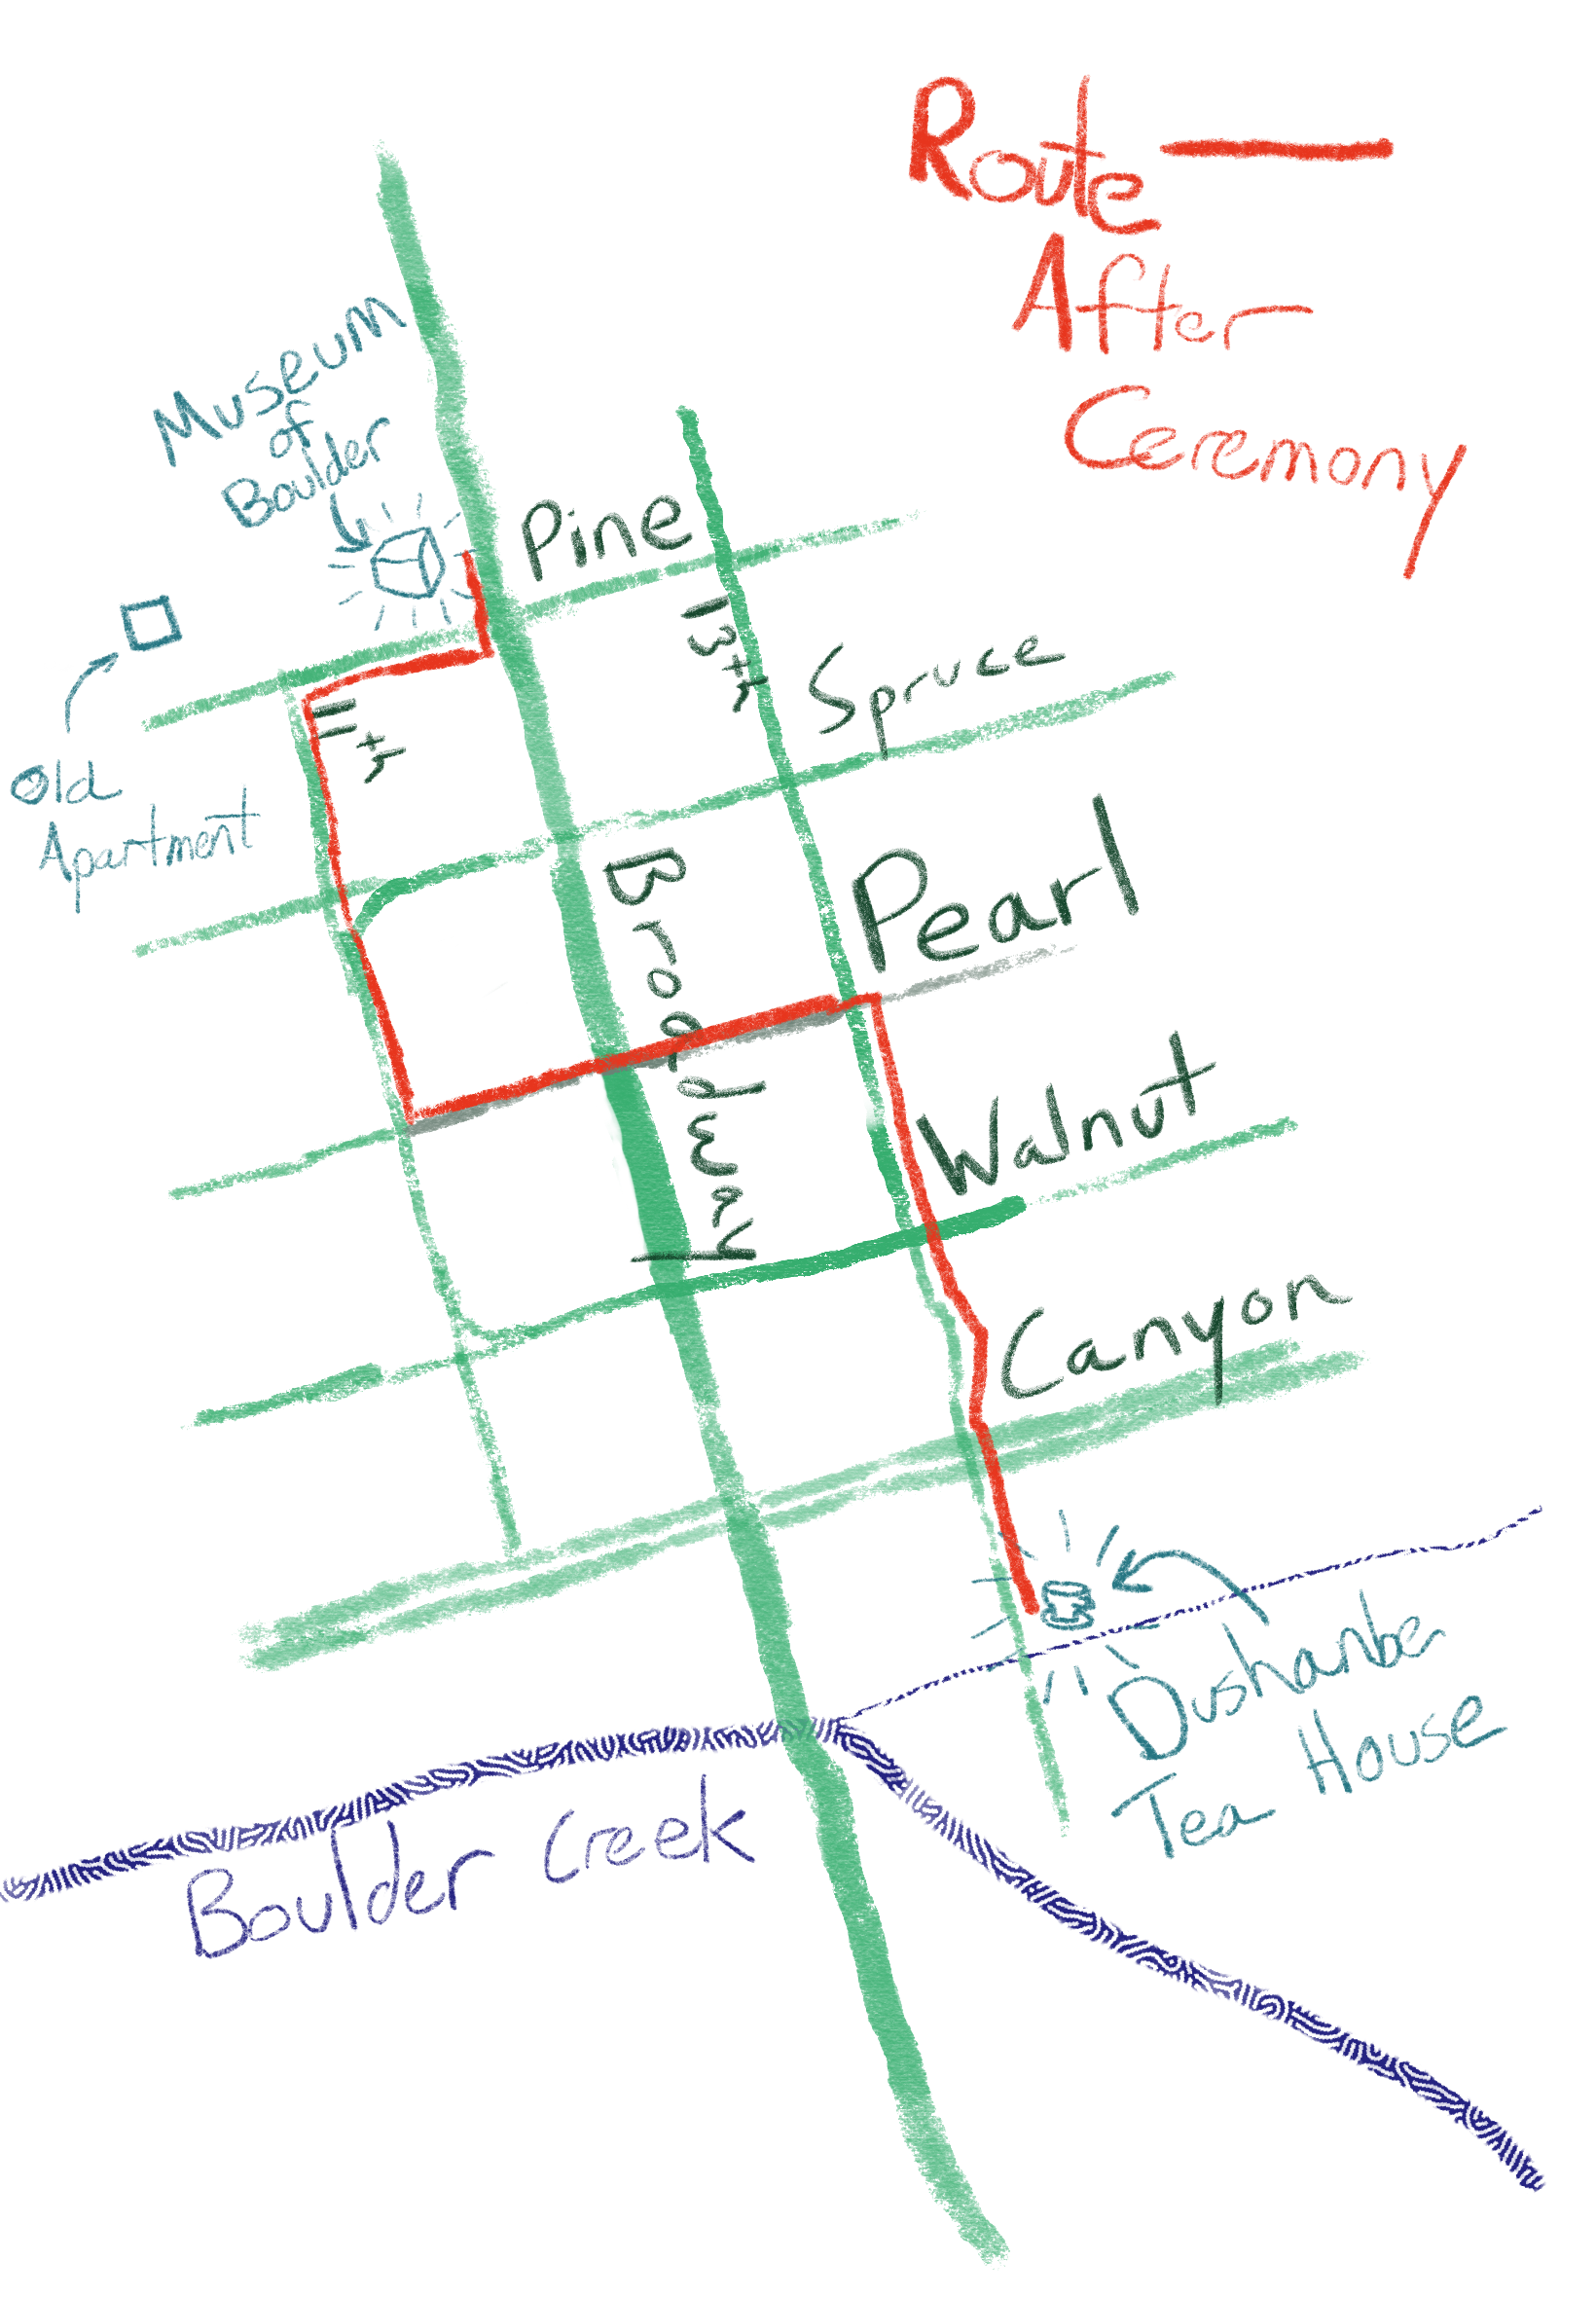 Route
After
Ceremony
Museum
of
Boulder
Pine
13th
Spruce
Old
Apartment
11th
Broadway
Pearl
Walnut
Canyon
Dushanbe
Tea House
Boulder Creek